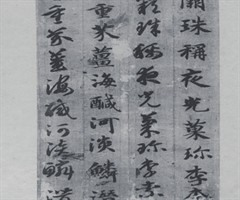 闕珠稱夜光菓珍李柰
闕珠稱夜光菓珍李柰
重芥薑海鹹河淡鱗潛
重芥薑海鹹河淡鱗潛